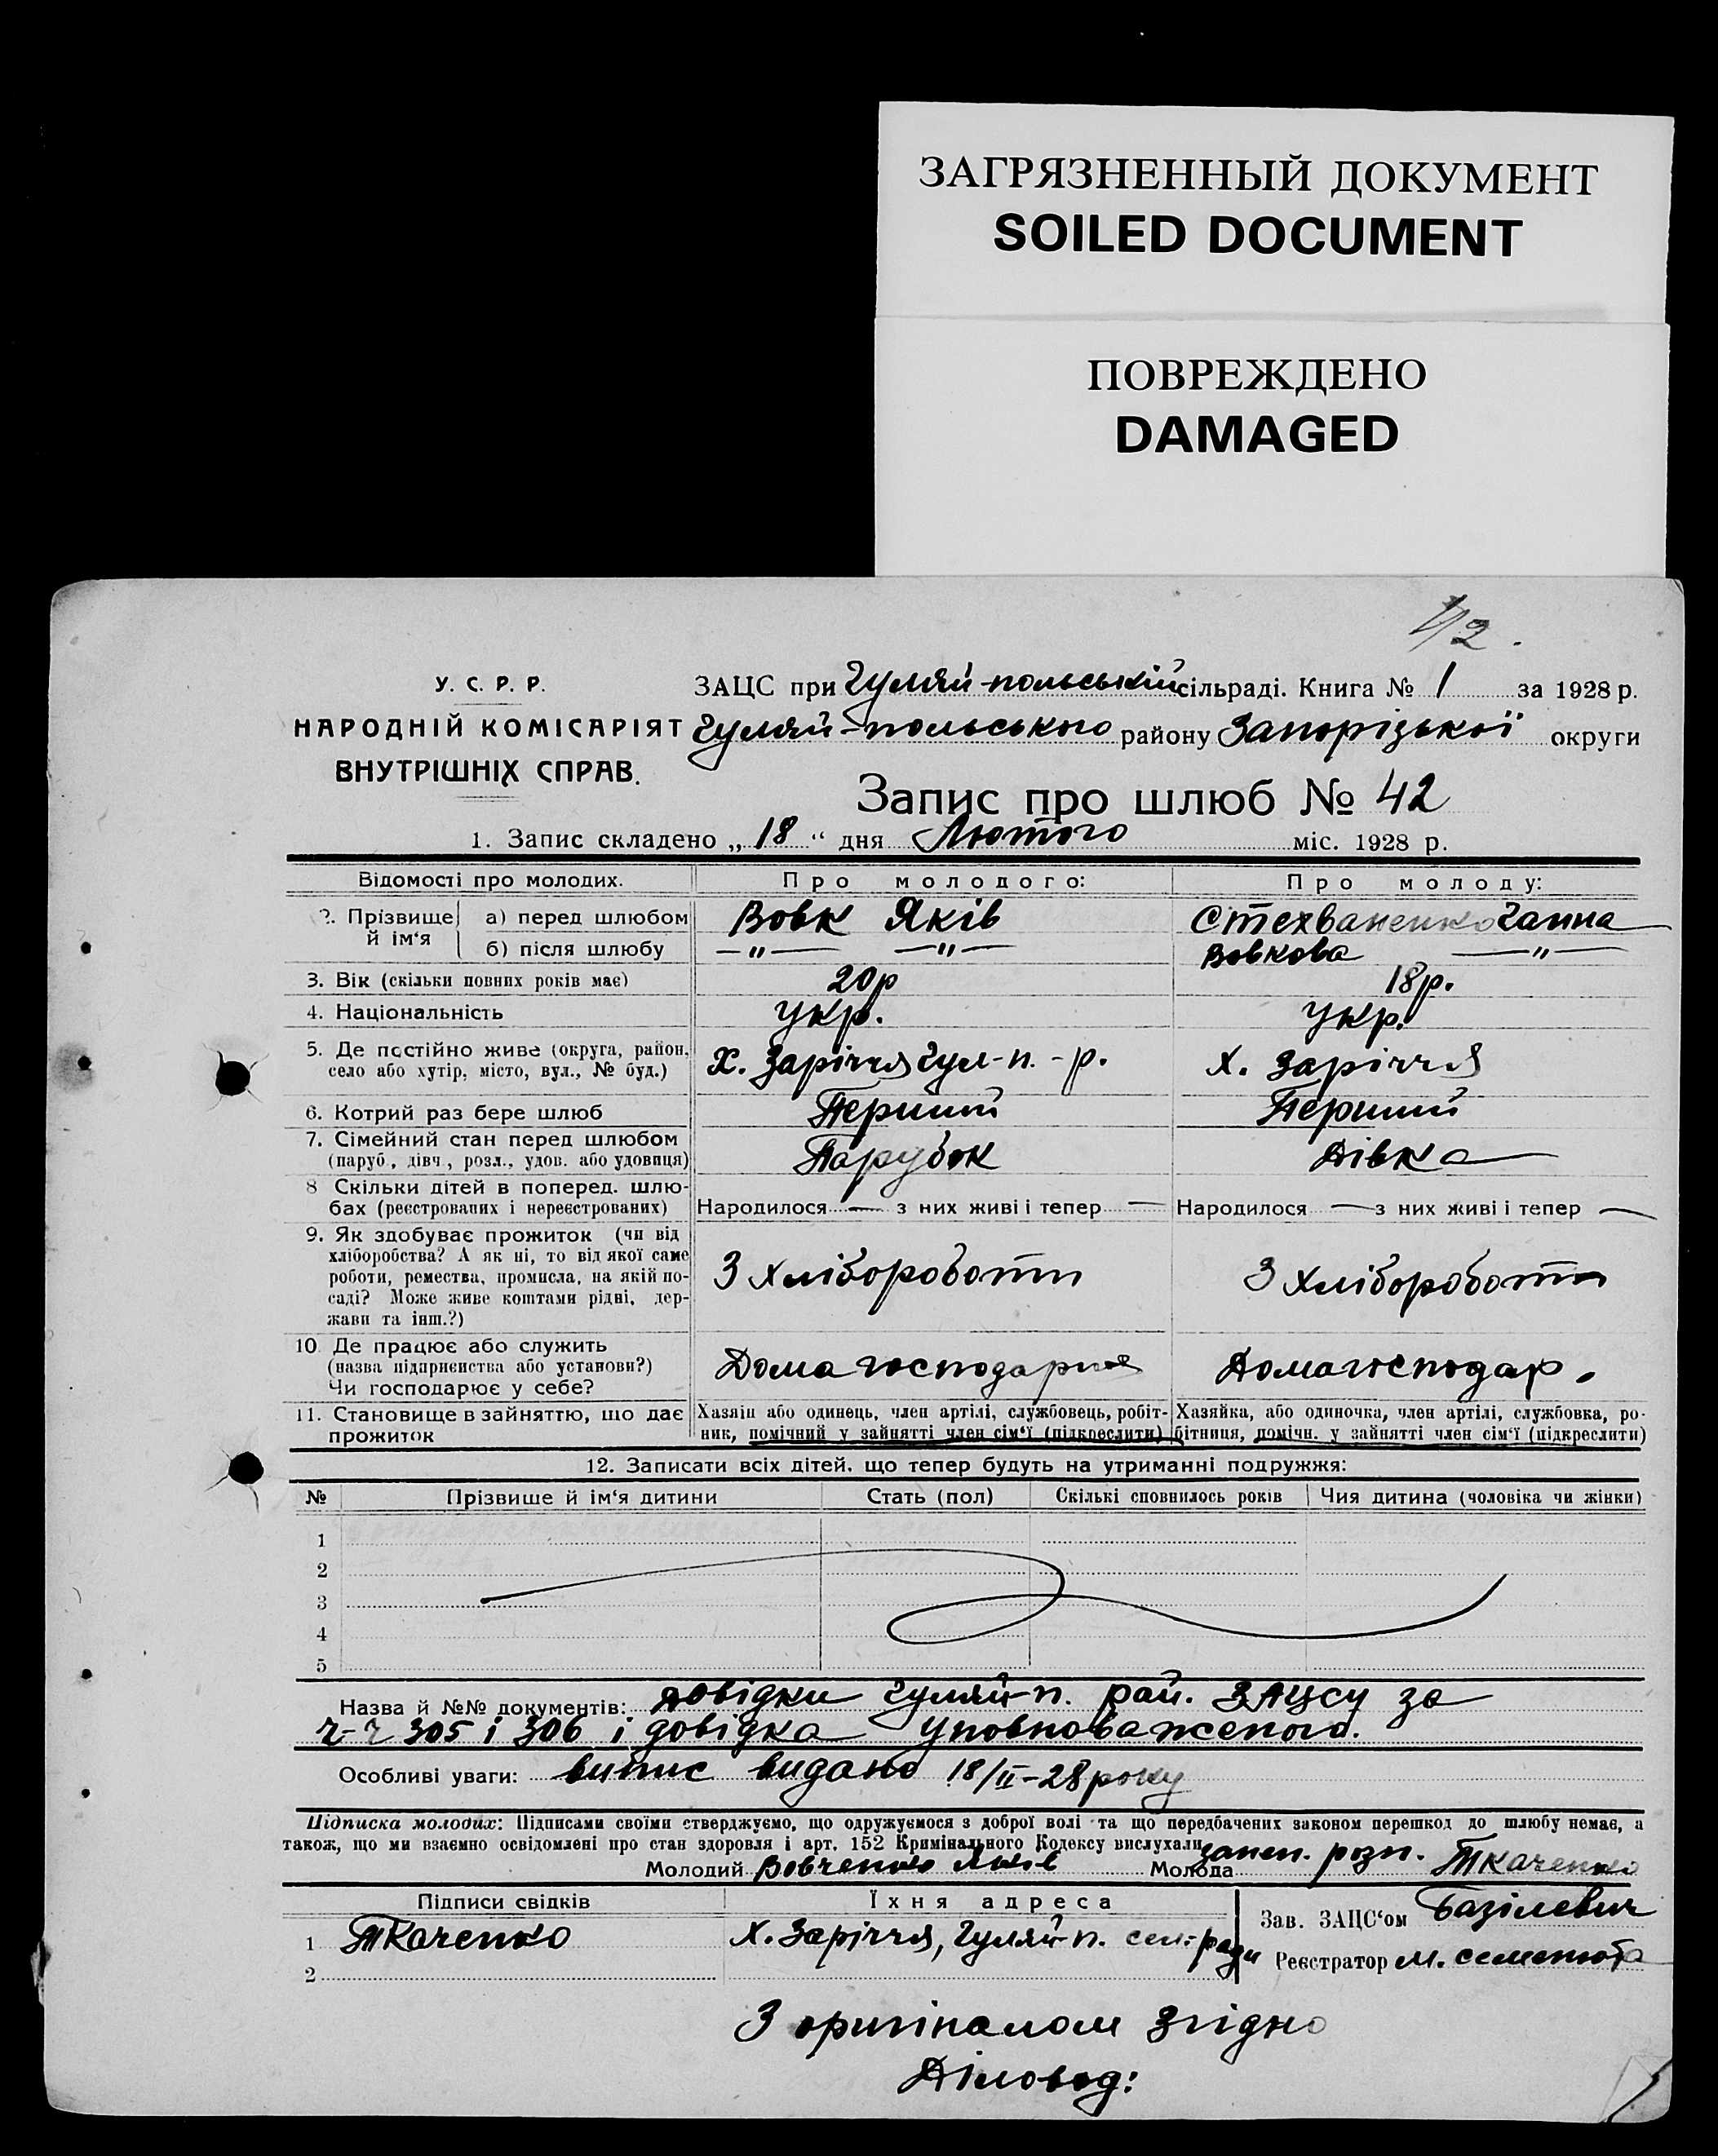 ЗАГРЯЗНЕННЫЙ ДОКУМЕНТ
SOILED DOCUMENT
ПОВРЕЖДЕНО
DAMAGED
У. С. Р. Р.
НАРОДНІЙ КОМІСАРІЯТ
ВНУТРІШНІХ СПРАВ.
ЗАЦС при Гуляй-польській сільраді. Книга № 1 за 1928 р.
Гуляй-польського району Запорізької округи
Запис про шлюб № 42
1. Запис складено „ 18 “ дня Лютого міс. 1928 р.
Відомості про молодих. Про молодого: Про молоду:
2. Прізвище й ім‘я а) перед шлюбом Вовк Яків Стехваненко Ганна
б) після шлюбу —„— —„— Вовкова —„—
3. Вік (скільки повних років має) 20р 18р.
4. Національність Укр. Укр.
5. Де постійно живе (округа, район, село або хутір, місто, вул., № буд.) х. Заріччя Гул-п. -р. х. Заріччя
6. Котрий раз бере шлюб Перший Перший
7. Сімейний стан перед шлюбом (паруб., дівч., розл., удов. або удовиця) Парубок Дівка
8 Скільки дітей в поперед. шлюбах (реєстрованих і нереєстрованих) Народилося — з них живі і тепер — Народилося — з них живі і тепер —
9. Як здобуває прожиток (чи від хліборобства? А як ні, то від якої саме роботи, ремества, промисла, на якій посаді? Може живе коштами рідні, держави та інш.?) З хлібороботи З хлібороботи
10. Де працює або служить (назва підприємства або установи?) Чи господарює у себе? Дома господарює Дома господар.
11. Становище в зайняттю, що дає прожиток Хазяїн або одинець, член артілі, службовець, робітник, помічний у зайнятті член сім‘ї (підкреслити) Хазяйка, або одиночка, член артілі, службовка, робітниця, помічн. у зайнятті член сім‘ї (підкреслити)
12. Записати всіх дітей, що тепер будуть на утриманні подружжя:
№ Прізвище й ім‘я дитини Стать (пол) Скількі сповнилось років Чия дитина (чоловіка чи жінки)
1
2
3
4
5
Назва й №№ документів: Довідки Гуляй-п. рай. ЗАЦСу за
ч-ч 305 і 306 і довідка уповноваженого.
Особливі уваги: випис видано 18/II-28 року
Підписка молодих: Підписами своїми стверджуємо, що одружуємося з доброї волі та що передбачених законом перешкод до шлюбу немає, а
також, що ми взаємно освідомлені про стан здоровля і арт. 152 Кримінального Кодексу вислухали
Молодий Вовченко Яків Молода розп. Ткаченко
Підписи свідків Їхня адреса Зав. ЗАЦС‘ом Базілевич
1 Ткаченко Х. Заріччя, Гуляй-п. сел.-ради Реєстратор М. Семенюта
2
З оригіналом згідно
Діловод: